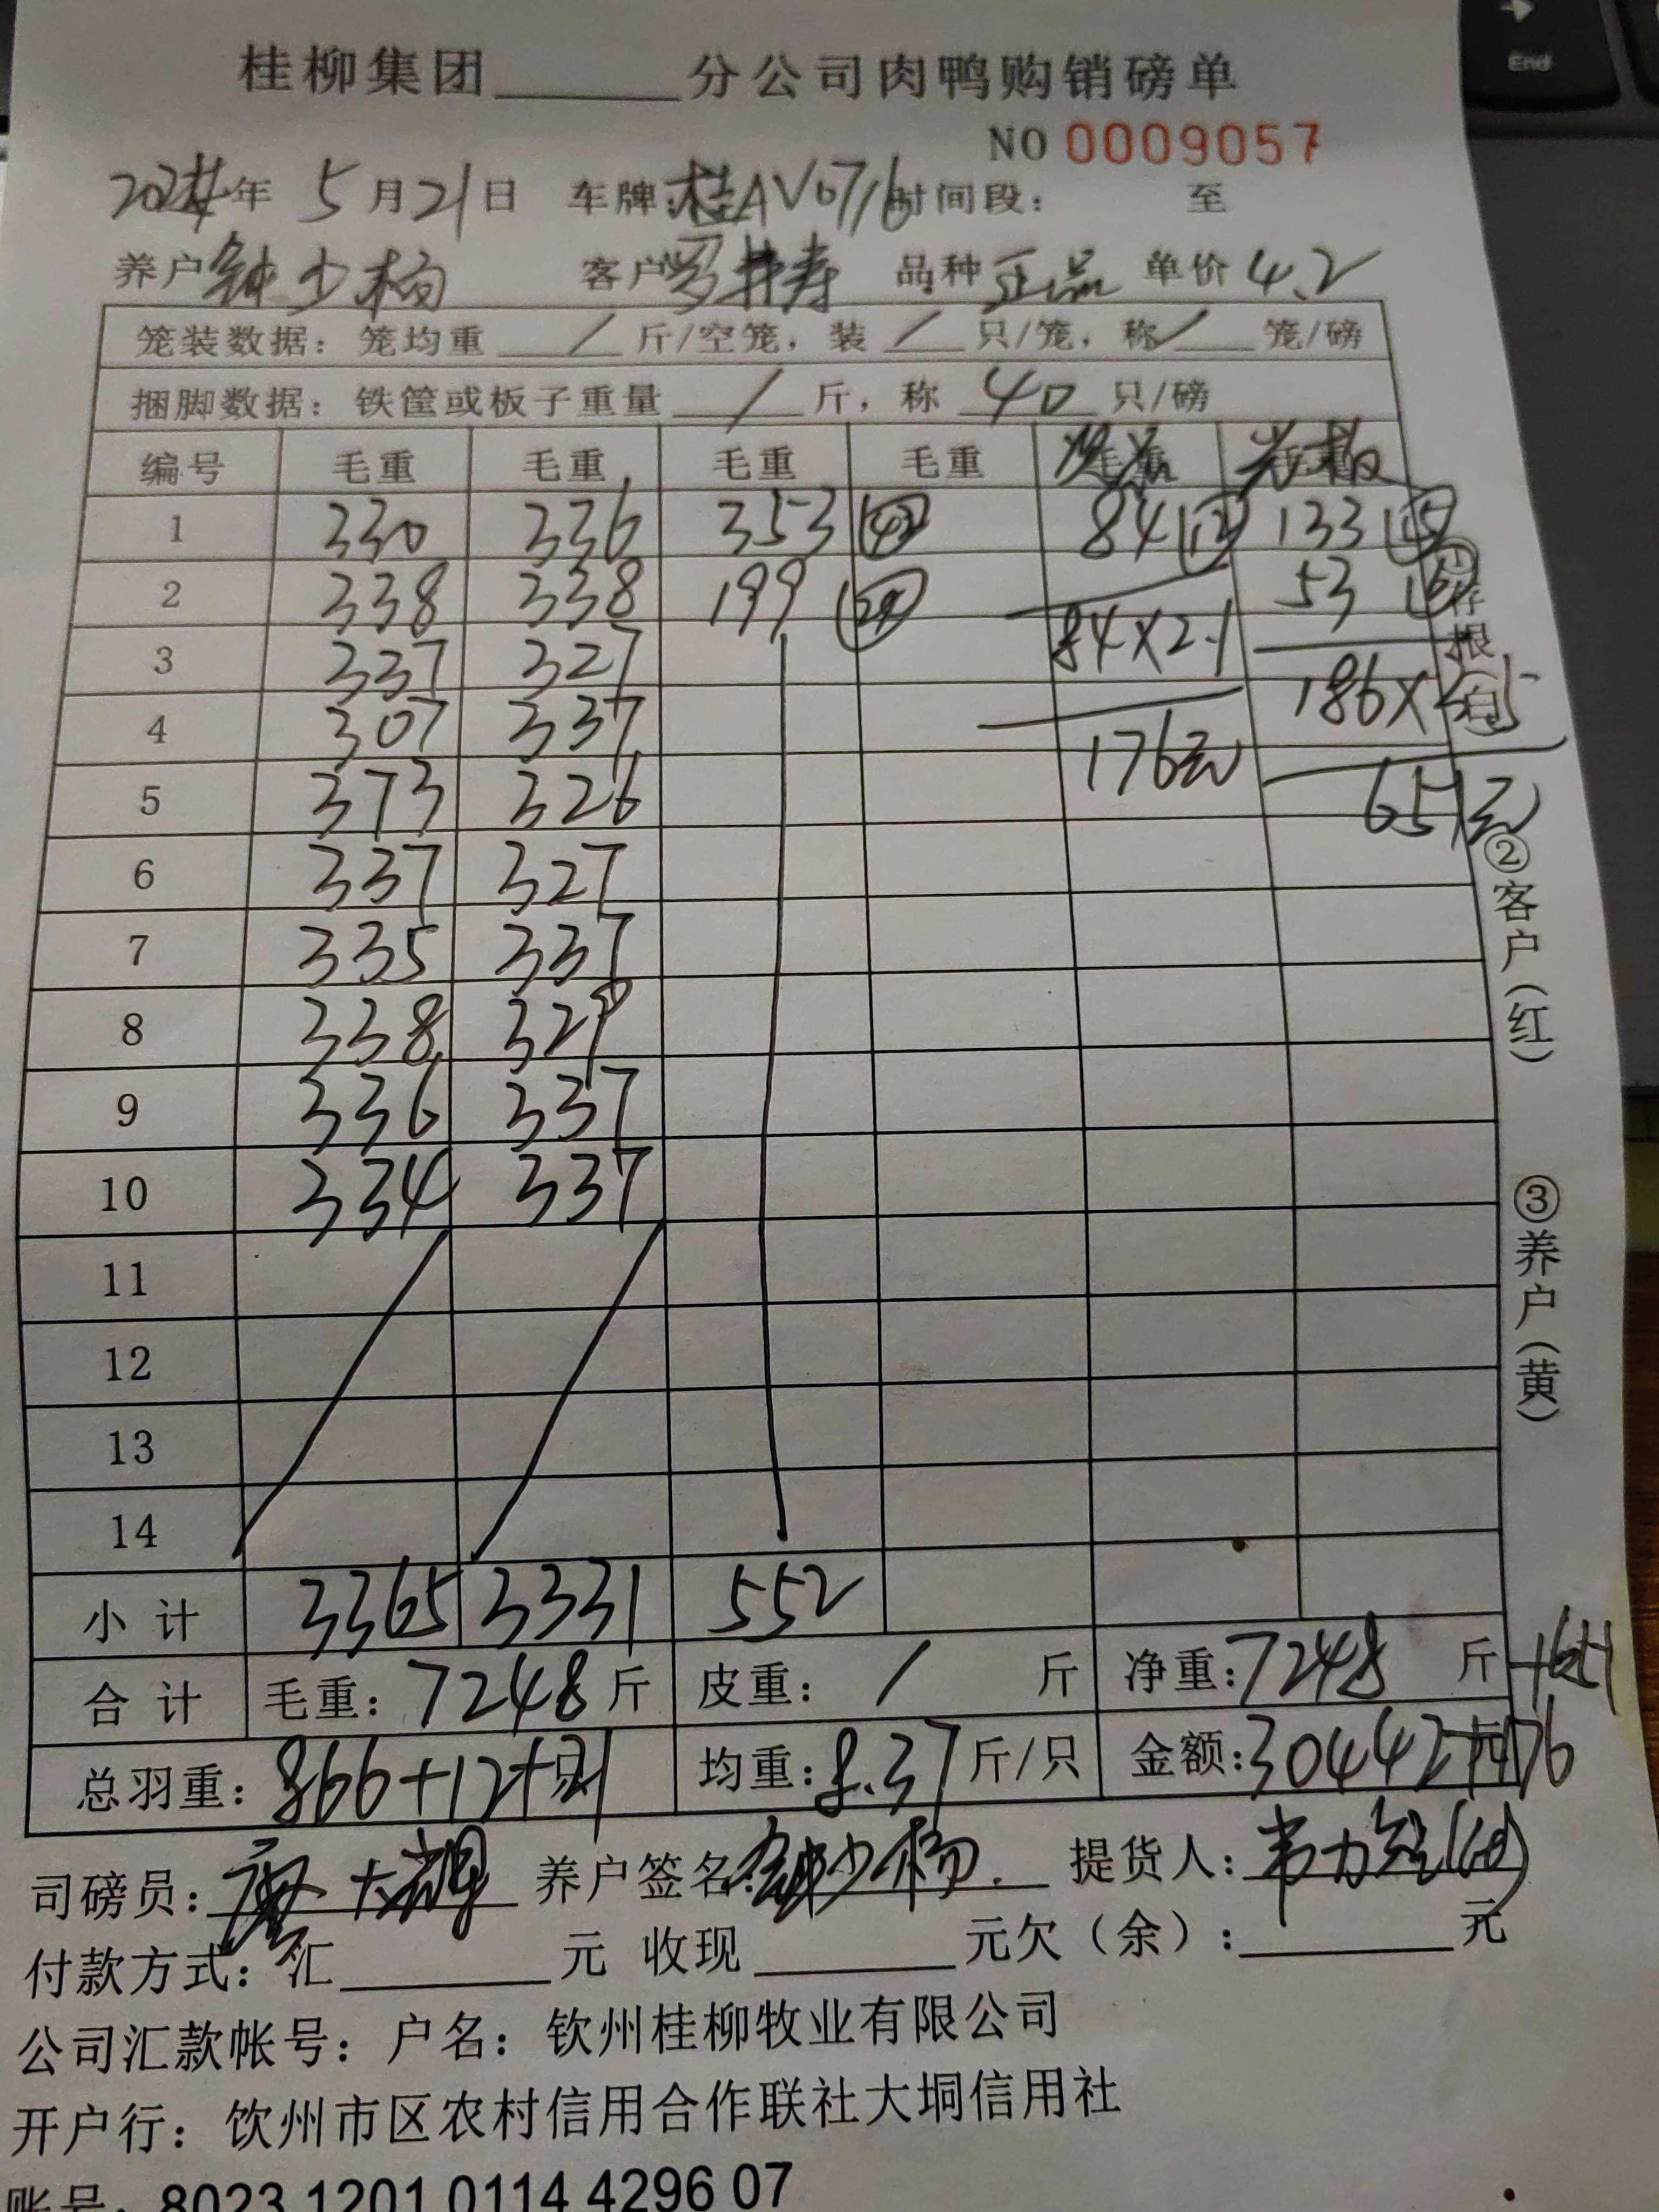 End
桂柳集团______分公司肉鸭购销磅单
NO 0009057
年 5月21日 车牌:桂AV0716 时间段: 至
养户 钟少杨 客户 罗 寿 品种 正品 单价 4.2
笼装数据: 笼均重 / 斤/空笼, 装 / 只/笼, 称 / 笼/磅
捆脚数据: 铁筐或板子重量 / 斤, 称 40 只/磅
编号 毛重 毛重 毛重 毛重
1 330 336 353 (42) 84 (12) 133 (15)
2 338 338 199 (24) 53 (6)
3 337 327 84×2.1
4 307 337 176元 186×
5 373 326 651元
6 337 327
7 335 337
8 338 329
9 336 337
10 334 337
11
12
13
14
小计 3365 3331 552
合计 毛重: 7248 斤 皮重: / 斤 净重: 7248 斤
总羽重: 866+12+21 只 均重: 8.37 斤/只 金额: 30442 元+176
①存根(白)
②客户(红)
③养户(黄)
司磅员: 养户签名: 钟少杨 提货人: 韦力
付款方式: 汇______元 收现______元欠(余):______元
公司汇款帐号: 户名: 钦州桂柳牧业有限公司
开户行: 钦州市区农村信用合作联社大垌信用社
账号: 8023 1201 0114 4296 07